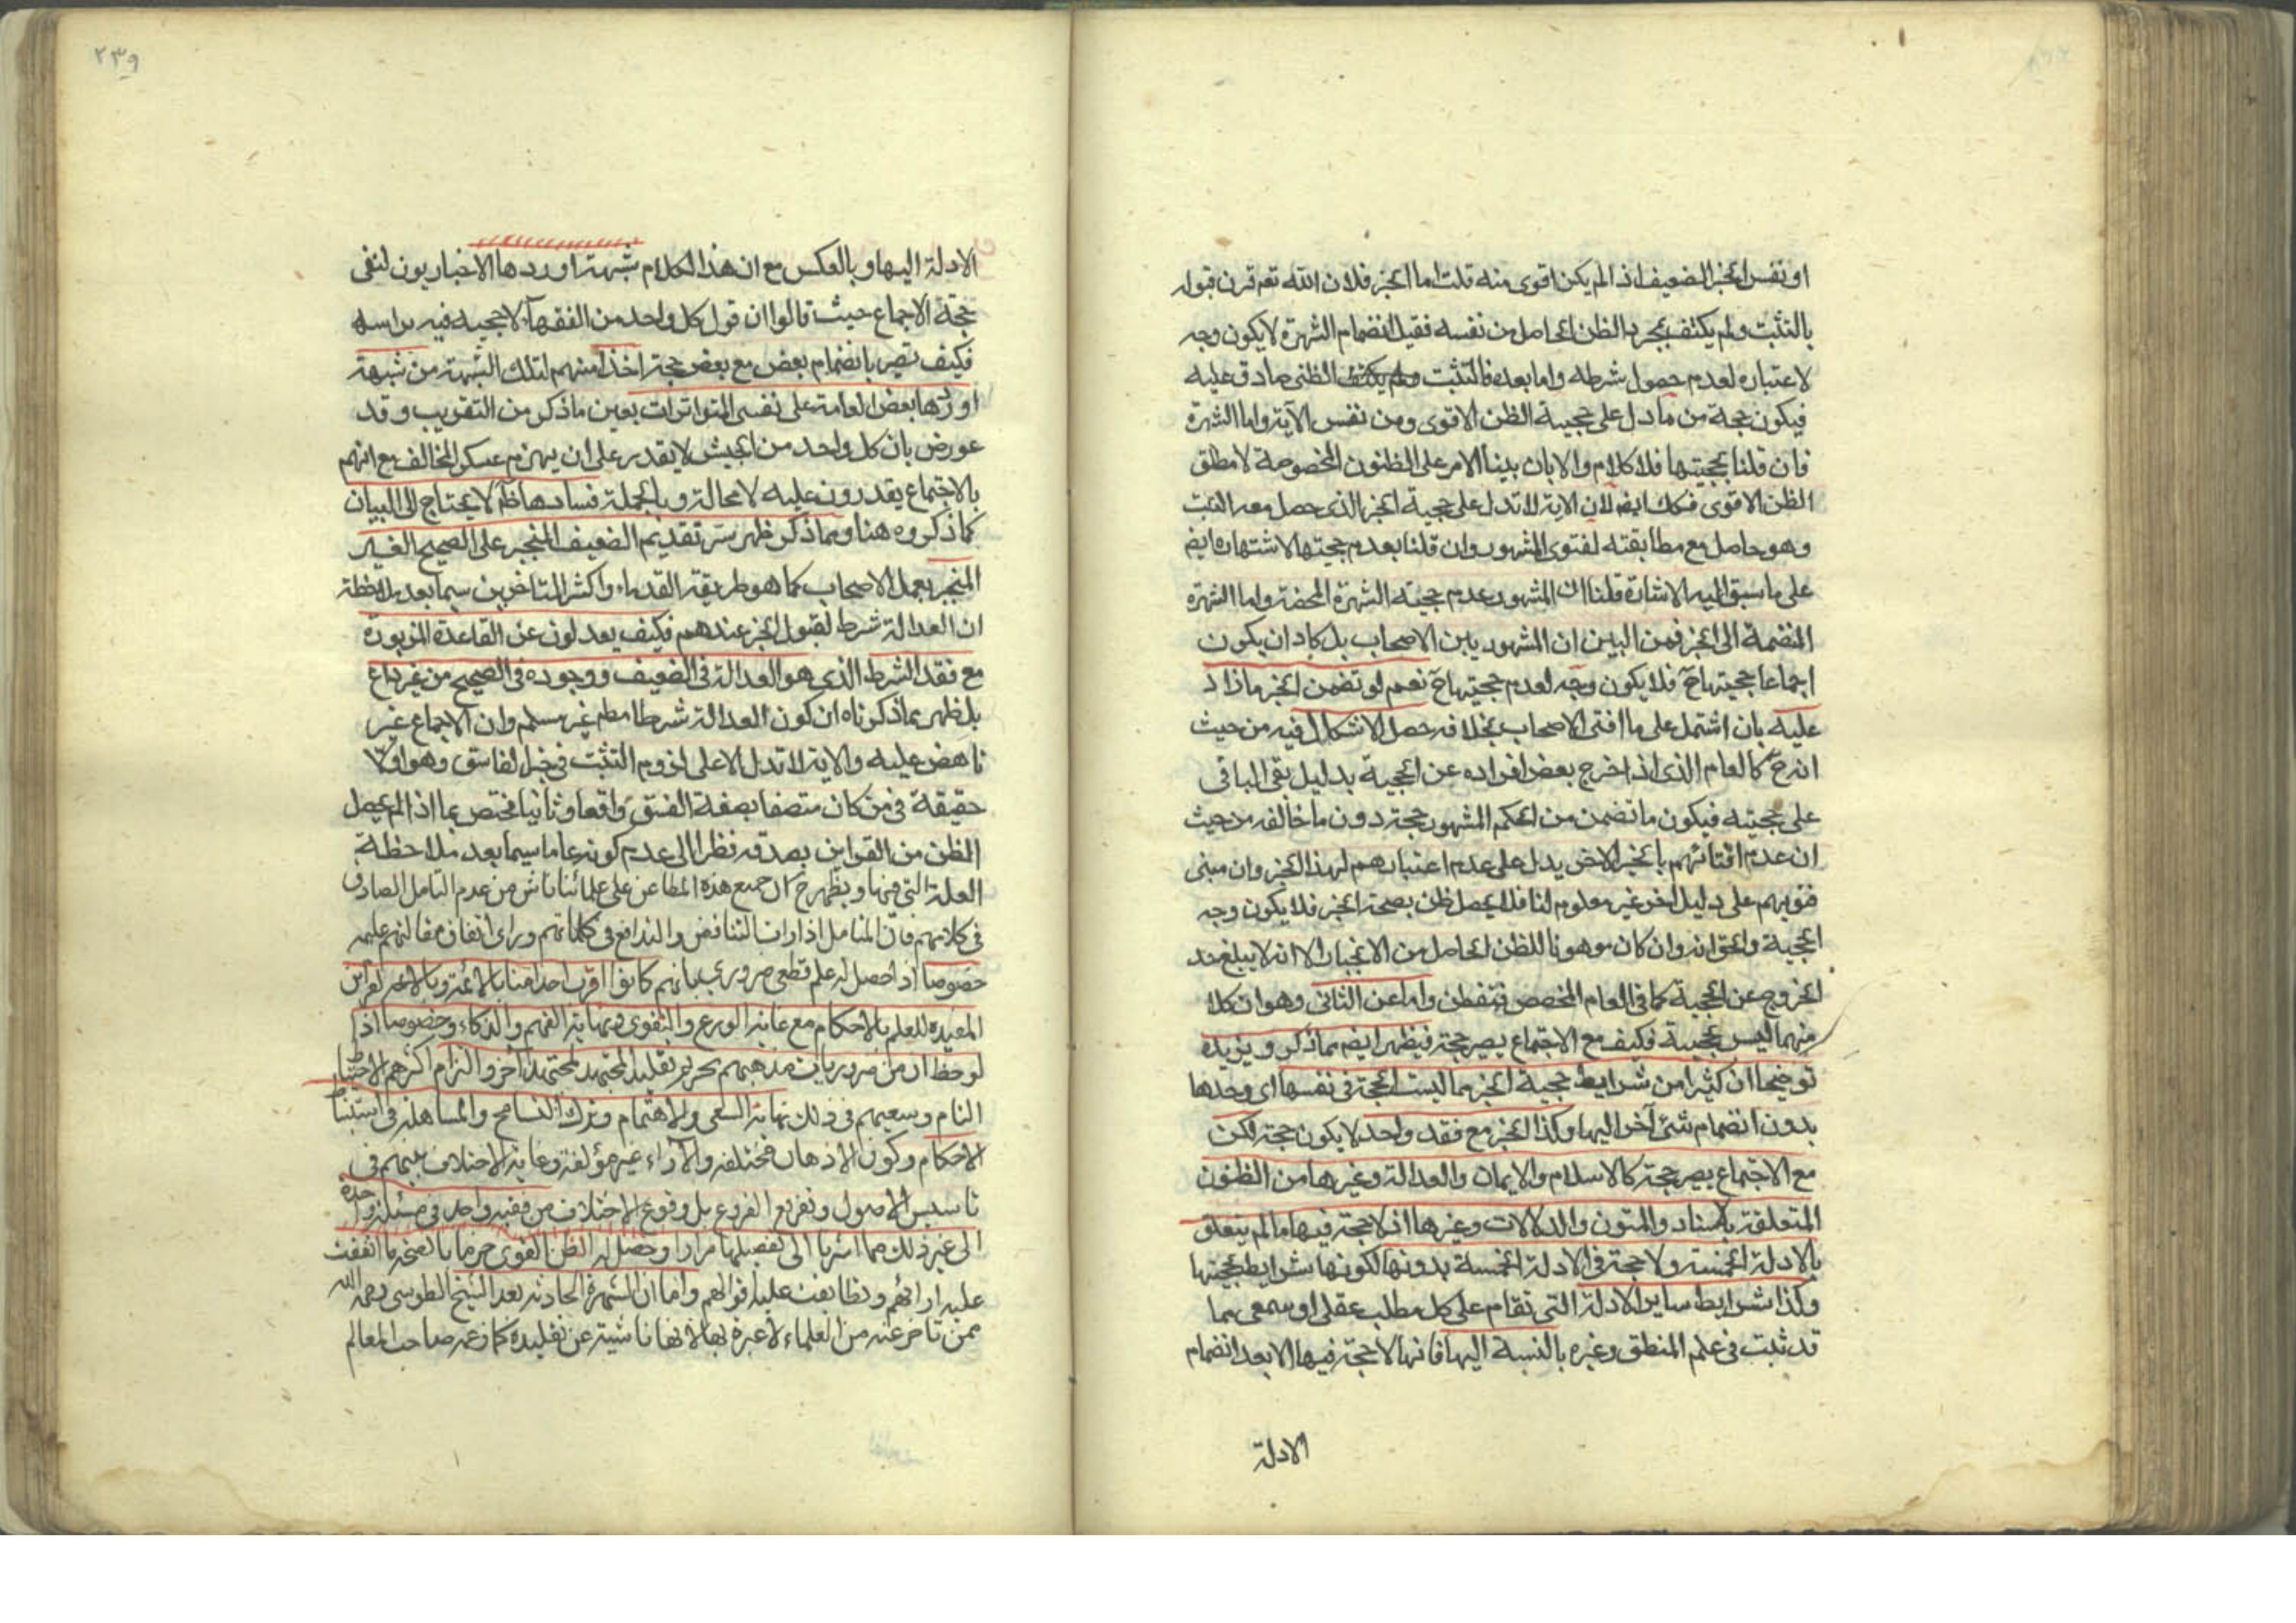 او نفس الخبر الضعيف اذا لم يكن اقوى منه قلت اما الخبر فلان الله تعم قرن قبوله
بالتثبت ولم يكتف بمجرد الظن الحاصل من نفسه فقبل انضمام الشهرة لا يكون وجه
لاعتباره لعدم حصول شرطه واما بعده فالتثبت الظنى صادق عليه
فيكون حجة من ما دل على حجية الظن الاقوى ومن نفس الآية واما الشهرة
فان قلنا بحجيتها فلا كلام والا بان بنينا الامر على الظنون المخصوصة لا مطلق
الظن الاقوى فكك ايضا لان الاية لا تدل على حجية الخبر الذى حصل معه التثبت
وهو حاصل مع مطابقته لفتوى المشهور وان قلنا بعدم حجتها لاشتهاره ايضا
على ما سبق اليه الاشارة قلنا ان المشهور عدم حجية الشهرة المحضة واما الشهرة
المنضمة الى الخبر فمن البين ان المشهور بين الاصحاب بل كاد ان يكون
اجماعا حجيتها ح فلا يكون وجه لعدم حجيتها ح نعم لو تضمن الخبر ما زاد
عليه بان اشتمل على ما افتى الاصحاب بخلافه حصل الاشكال فيه من حيث
انه ح كالعام الذى اذا خرج بعض افراده عن الحجية بدليل بقى الباقى
على حجيته فيكون ما تضمن من الحكم المشهور حجة دون ما خالفه من حيث
ان عدم افتائهم بالخبر الاخر يدل على عدم اعتبارهم لهذا الخبر وان مبنى
فتويهم على دليل اخر غير معلوم لنا فلا يحصل ظن بصحة الخبر فلا يكون وجه
الحجية والحق انه وان كان موهونا للظن الحاصل من الانجبار الا انه لا يبلغ حد
الخروج عن الحجية كما فى العام المخصص فتفطن واما عن الثانى وهو ان كلا
منهما ليس بحجية فكيف مع الاجتماع يصير حجة فيظهر ايضا مما ذكر ويزيده
توضيحا ان كثيرا من شرايط حجية الخبر مما ليست الحجة فى نفسها اى وحدها
بدون انضمام شئ آخر اليها وكذا الخبر مع فقد واحد لا يكون حجة لكن
مع الاجتماع يصير حجة كالاسلام والايمان والعدالة وغيرها من الظنون
المتعلقة بالسناد والمتون والدلالات وغيرها اذ لا حجة فيها ما لم يتعلق
بالادلة الخمسة ولا حجة فى الادلة الخمسة بدونها لكونها شرايط حجيتها
وكذا شرايط ساير الادلة التى تقام على كل مطلب عقلى او سمعى مما
قد ثبت فى علم المنطق وغيره بالنسبة اليها فانها لا حجة فيها الا بعد انضمام
الادلة
٢٣٩
الادلة اليها وبالعكس مع ان هذا الكلام شبهة اوردها الاخباريون لنفى
حجة الاجماع حيث قالوا ان قول كل واحد من الفقهآء لا حجية فيه براسه
فكيف تصير بانضمام بعض مع بعض حجة اخذا منهم لتلك الشبهة من شبهة
اوردها بعض العامة على نفسى المتواترات بعين ما ذكر من التقريب وقد
عورض بان كل واحد من الجيش لا يقدر على ان يهزم عسكر المخالف مع انهم
بالاجتماع يقدرون عليه لا محالة وبالجملة فسادها ظ لا يحتاج الى البيان
كما ذكروه هنا ومما ذكر ظهر سر تقديم الضعيف المنجبر على الصحيح الغير
المنجبر بعمل الاصحاب كما هو طريقة القدماء واكثر المتاخرين سيما بعد ملاحظة
ان العدالة شرط لقبول الخبر عندهم فكيف يعدلون عن القاعدة المزبورة
مع فقد الشرط الذى هو العدالة فى الضعيف ووجوده فى الصحيح من غير داع
بل ظهر مما ذكرناه ان كون العدالة شرطا مطم غير مسلم وان الاجماع غير
ناهض عليه والاية لا تدل الا على لزوم التثبت فى خبر الفاسق وهو اولا
حقيقة فى من كان متصفا بصفة الفسق واقعا وثانيا مختص بما اذا لم يحصل
الظن من القواين بصدقه نظرا الى عدم كونه عاما سيما بعد ملاحظة
العلة التى فيها ويظهر ح ان جميع هذه المطاعن على علمائنا ناش من عدم التامل الصادق
فى كلامهم فان المتامل اذا راى التناقض والتدافع فى كلماتهم وراى اتفاق مقالتهم عليه
خصوصا اذا حصل له علم قطعى ضرورى بانهم كانوا اقرب احد منا بالائمة وبالاعم القراين
المفيده للعلم بالاحكام مع غاية الورع والتقوى ونهاية الفهم والذكاء وخصوصا اذا
لوحظ ان من ضروريات مذهبهم تحريم تقليد المجتهد لمجتهد آخر والتزام اكثرهم الاحتياط
التام وسعيهم فى ذلك نهاية السعى والاهتمام وترك التسامح والمساهلة فى استنباط
الاحكام وكون الاذهان مختلفة والآراء غير مؤلفة وغاية الاختلاف بينهم فى
تاسيس الاصول وتفريع الفروع بل وقوع الاختلاف من فقيه واحد فى مسئلة واحدة
الى غير ذلك مما اشرنا الى تفصيلها مرارا وحصل له الظن القوى جزما بالصحة ما اتفقت
عليه ارائهم وتطابقت عليه اقوالهم واما ان الشهرة الحادثة بعد الشيخ الطوسى رحمه الله
ممن تاخر عنه من العلماء لا عبرة بها لانها ناشية عن تقليده كما زعمه صاحب المعالم